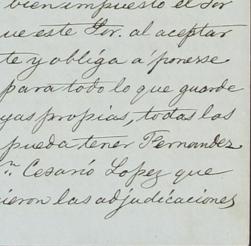 bien impuesto el Sor
ue este Sor. al aceptar
te y obliga á ponerse
para todo lo que guarde
yas propias, todas las
pueda tener Fernandez
n. Cesario Lopez que
ieron las adjudicaciones